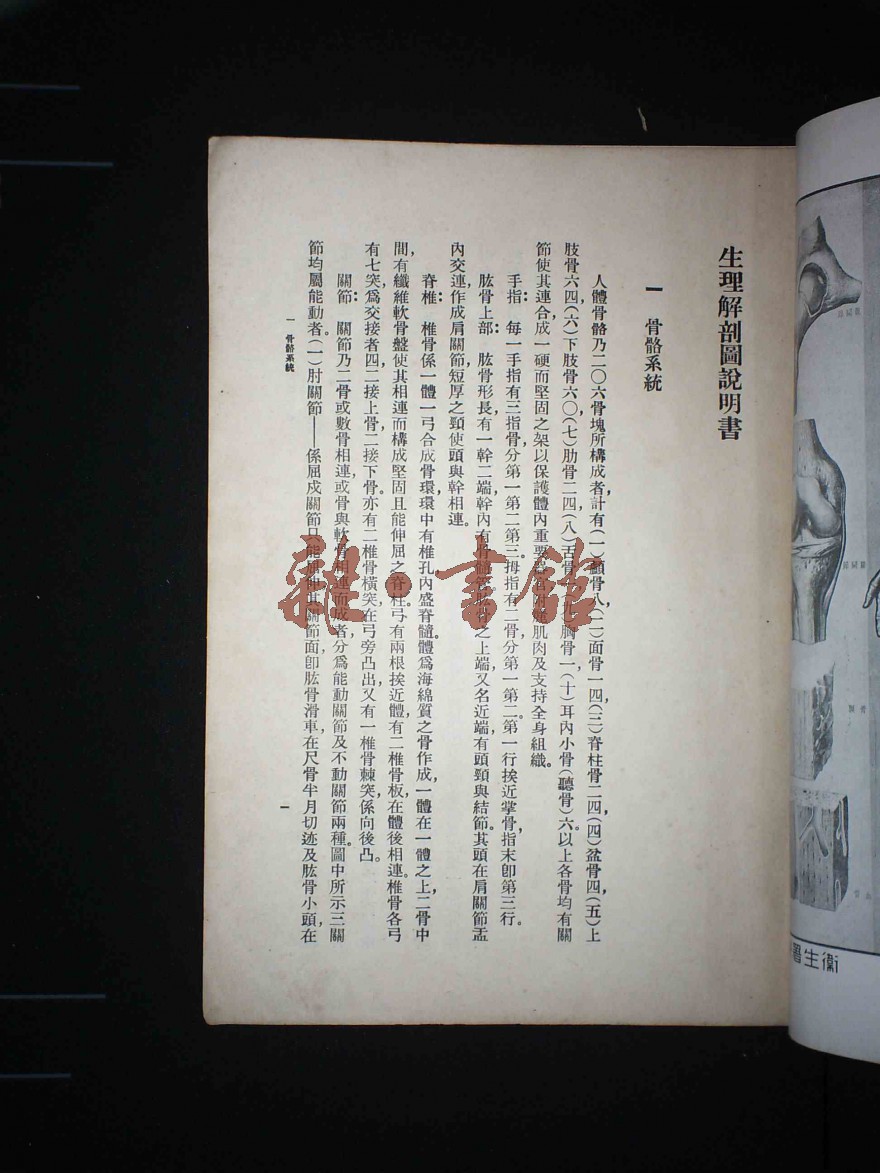 生理解剖圖說明書
一　骨骼系統
人體骨骼乃二〇六骨塊所構成者，計有（一）顱骨八，（二）面骨一四，（三）脊柱骨二四（四）盆骨四，（五）上
肢骨六四（六）下肢骨六〇，（七）肋骨二四（八）舌骨一（九）胸骨一（十）耳內小骨（聽骨）六。以上各骨均有關
節使其連合成一硬而堅固之架以保護體內重要器官附麗肌肉及支持全身組織。
手指：　每一手指有三指骨，分第一第二第三。拇指有二骨分第一第二。第一行挨近掌骨，指末卽第三行。
肱骨上部：　肱骨形長有一幹二端，幹內有骨髓管肱骨之上端又名近端，有頭頸與結節。其頭在肩關節盂
內交連作成肩關節短厚之頸使頭與幹相連。
脊椎：　椎骨係一體一弓合成骨環，環中有椎孔內盛脊髓。體爲海綿質之骨作成，一體在一體之上，二骨中
間有纖維軟骨盤使其相連而構成堅固且能伸屈之脊柱。弓有兩根挨近體，有二椎骨板在體後相連。椎骨各弓
有七突，爲交接者四二接上骨，二接下骨。亦有二椎骨橫突在弓旁凸出又有一椎骨棘突係向後凸。
關節：　關節乃二骨或數骨相連或骨與軟骨相連而成者，分爲能動關節及不動關節兩種。圖中所示三關
節均屬能動者。（一）肘關節——係屈戍關節只能屈伸其關節面卽肱骨滑車在尺骨半月切迹及肱骨小頭，在
一　骨骼系統
一
雜·書館
衛生署